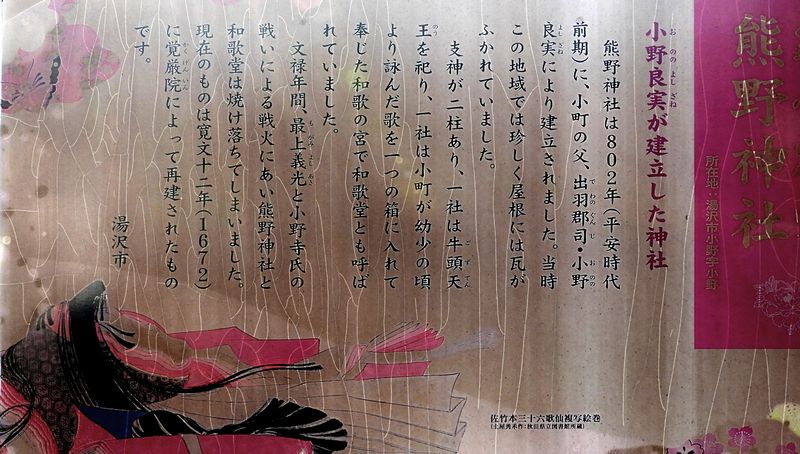 熊野神社
所在地：湯沢市小野字小野
小野良実が建立した神社
熊野神社は802年(平安時代
前期)に、小町の父、出羽郡司・小野
良実により建立されました。当時
この地域では珍しく屋根には瓦が
ふかれていました。
支神が二柱あり、一社は牛頭天
王を祀り、一社は小町が幼少の頃
より詠んだ歌を一つの箱に入れて
奉じた和歌の宮で和歌堂とも呼ば
れていました。
文禄年間、最上義光と小野寺氏の
戦いによる戦火にあい熊野神社と
和歌堂は焼け落ちてしまいました。
現在のものは寛文十二年(1672)
に覚厳院によって再建されたもの
です。
湯沢市
佐竹本三十六歌仙複写絵巻
(土屋秀禾作：秋田県立図書館所蔵)